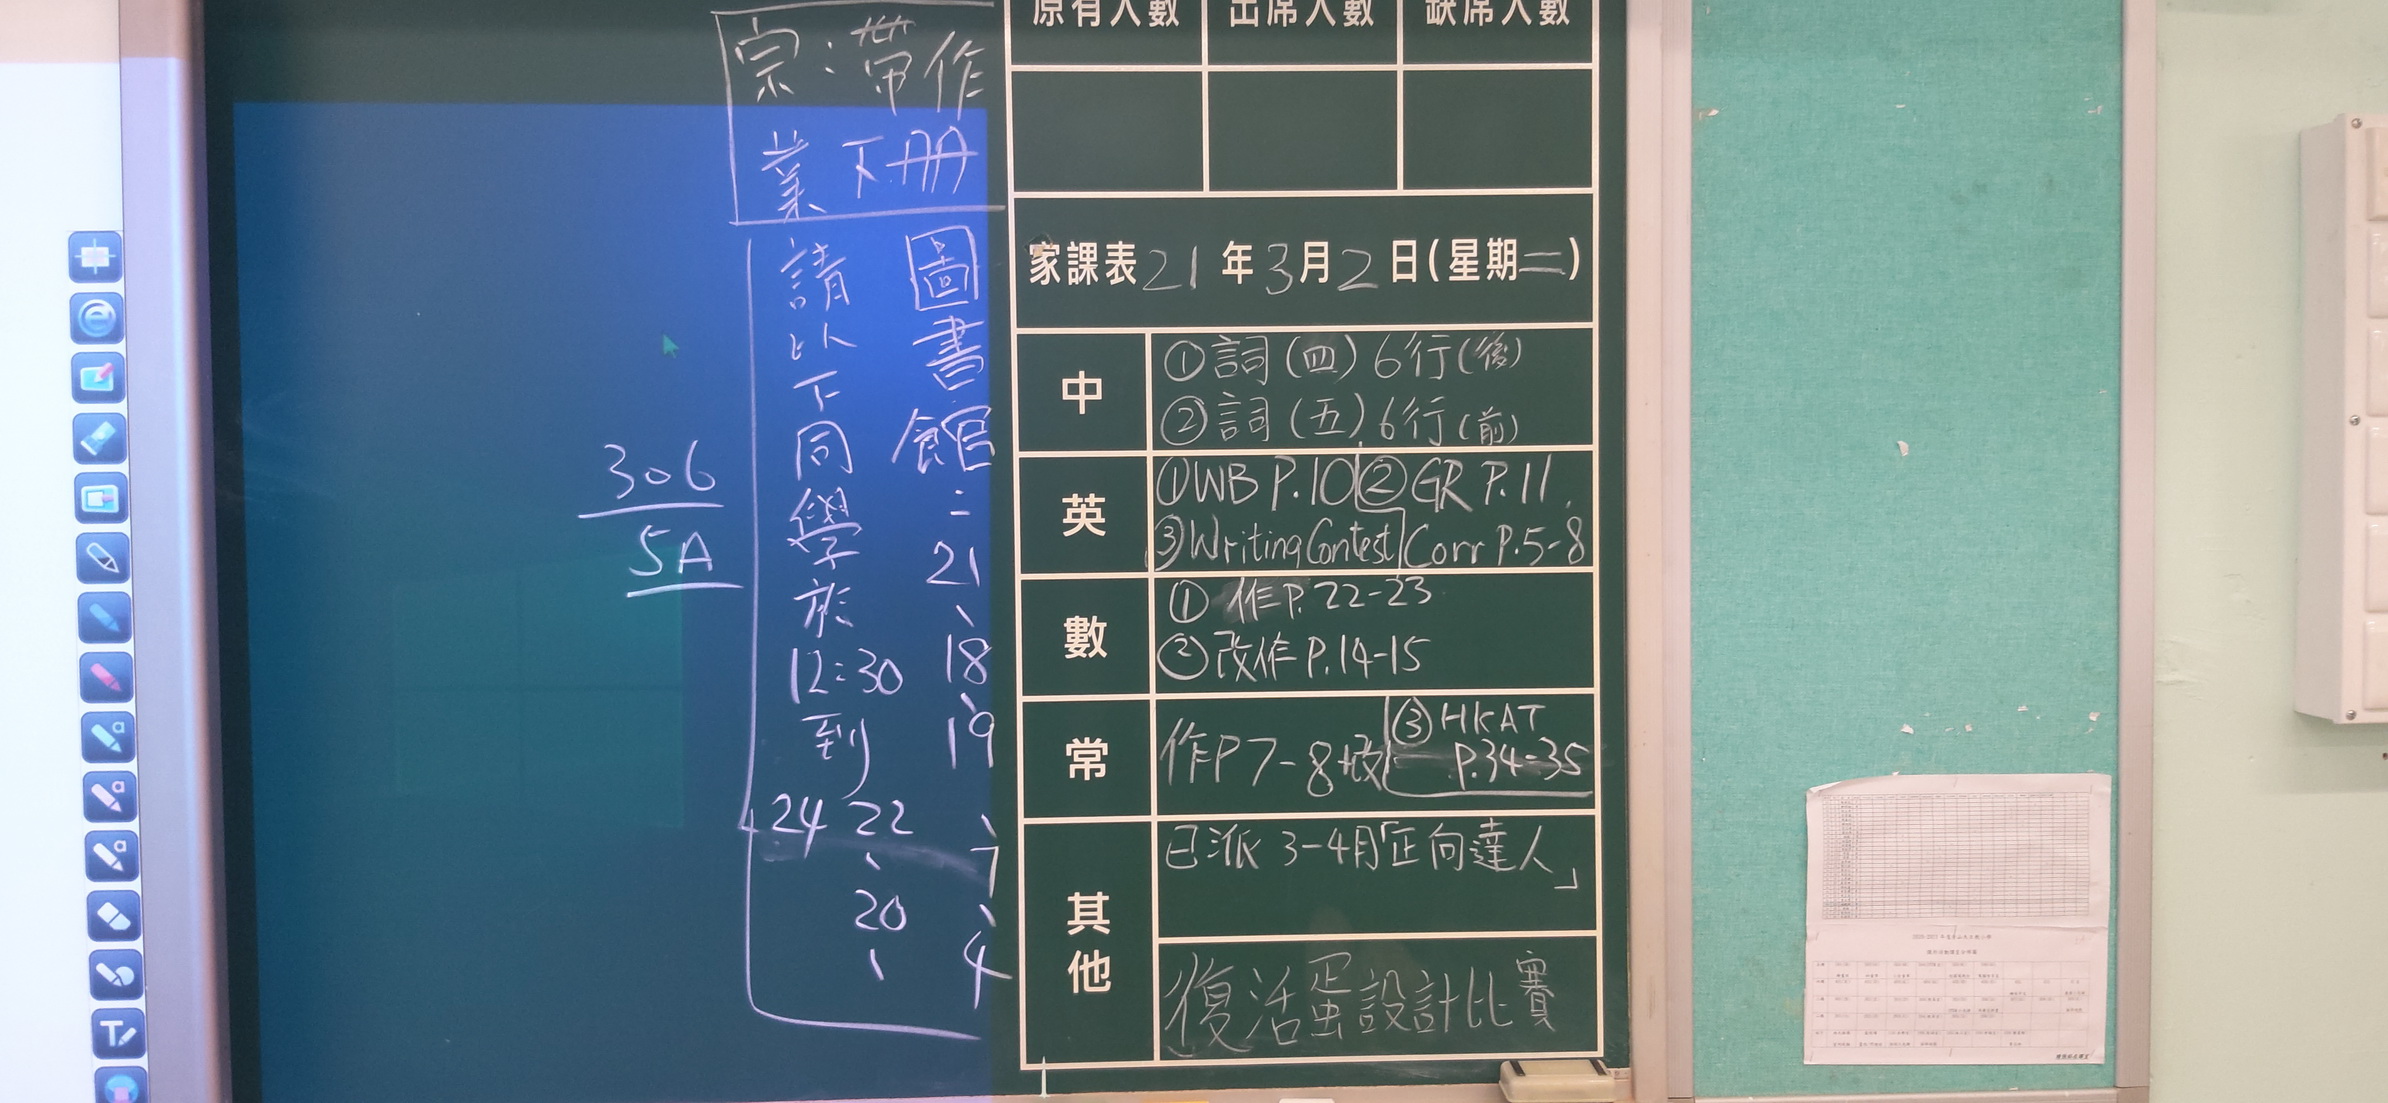 宗:帶作
業下冊
圖書館:21、18、19、7、4
請以下同學於12:30到
22、20、
24
306
5A
原有人數 出席人數 缺席人數
家課表21年3月2日(星期二)
中
①詞(四)6行(後)
②詞(五)6行(前)
英
①WB P.10 ②GR P.11
③Writing Contest Corr P.5-8
數
①作P.22-23
②改作P.14-15
③HKAT
P.34-35
常
作P7-8+改
其他
已派3-4月「正向達人」
復活蛋設計比賽